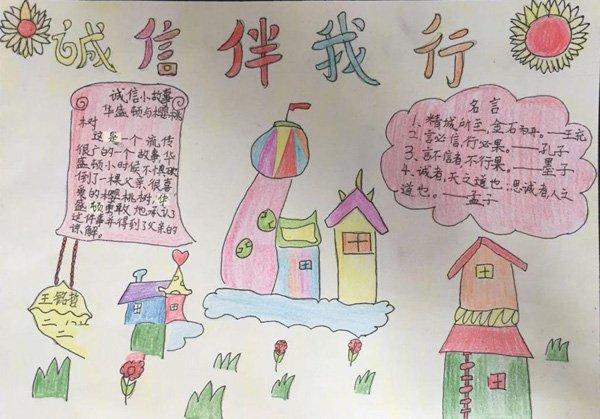 诚信伴我行
诚信小故事
华盛顿与樱桃
树
这是一个流传
很广的一个故事华
盛顿小时候不慎砍
倒了一棵父亲很喜
爱的樱桃树，华
盛顿勇敢地承认了
这件事并得到了父亲的
谅解。
名言
1、精诚所至，金石为开。——王充
2、言必信，行必果。——孔子
3、言不信者不行果。——墨子
4、诚者，天之道也；思诚者人之
道也。——孟子